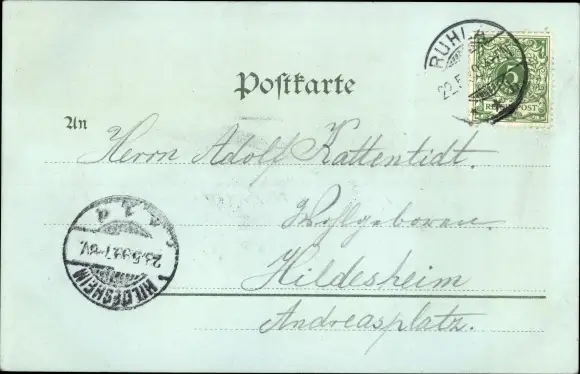 RUHLA
22.5.
5
REICHSPOST
Postkarte
An
Herrn Adolf Kattentidt.
Wohlgeboren.
Hildesheim
Andreasplatz.
23.5.99.7-8V.
HILDESHEIM